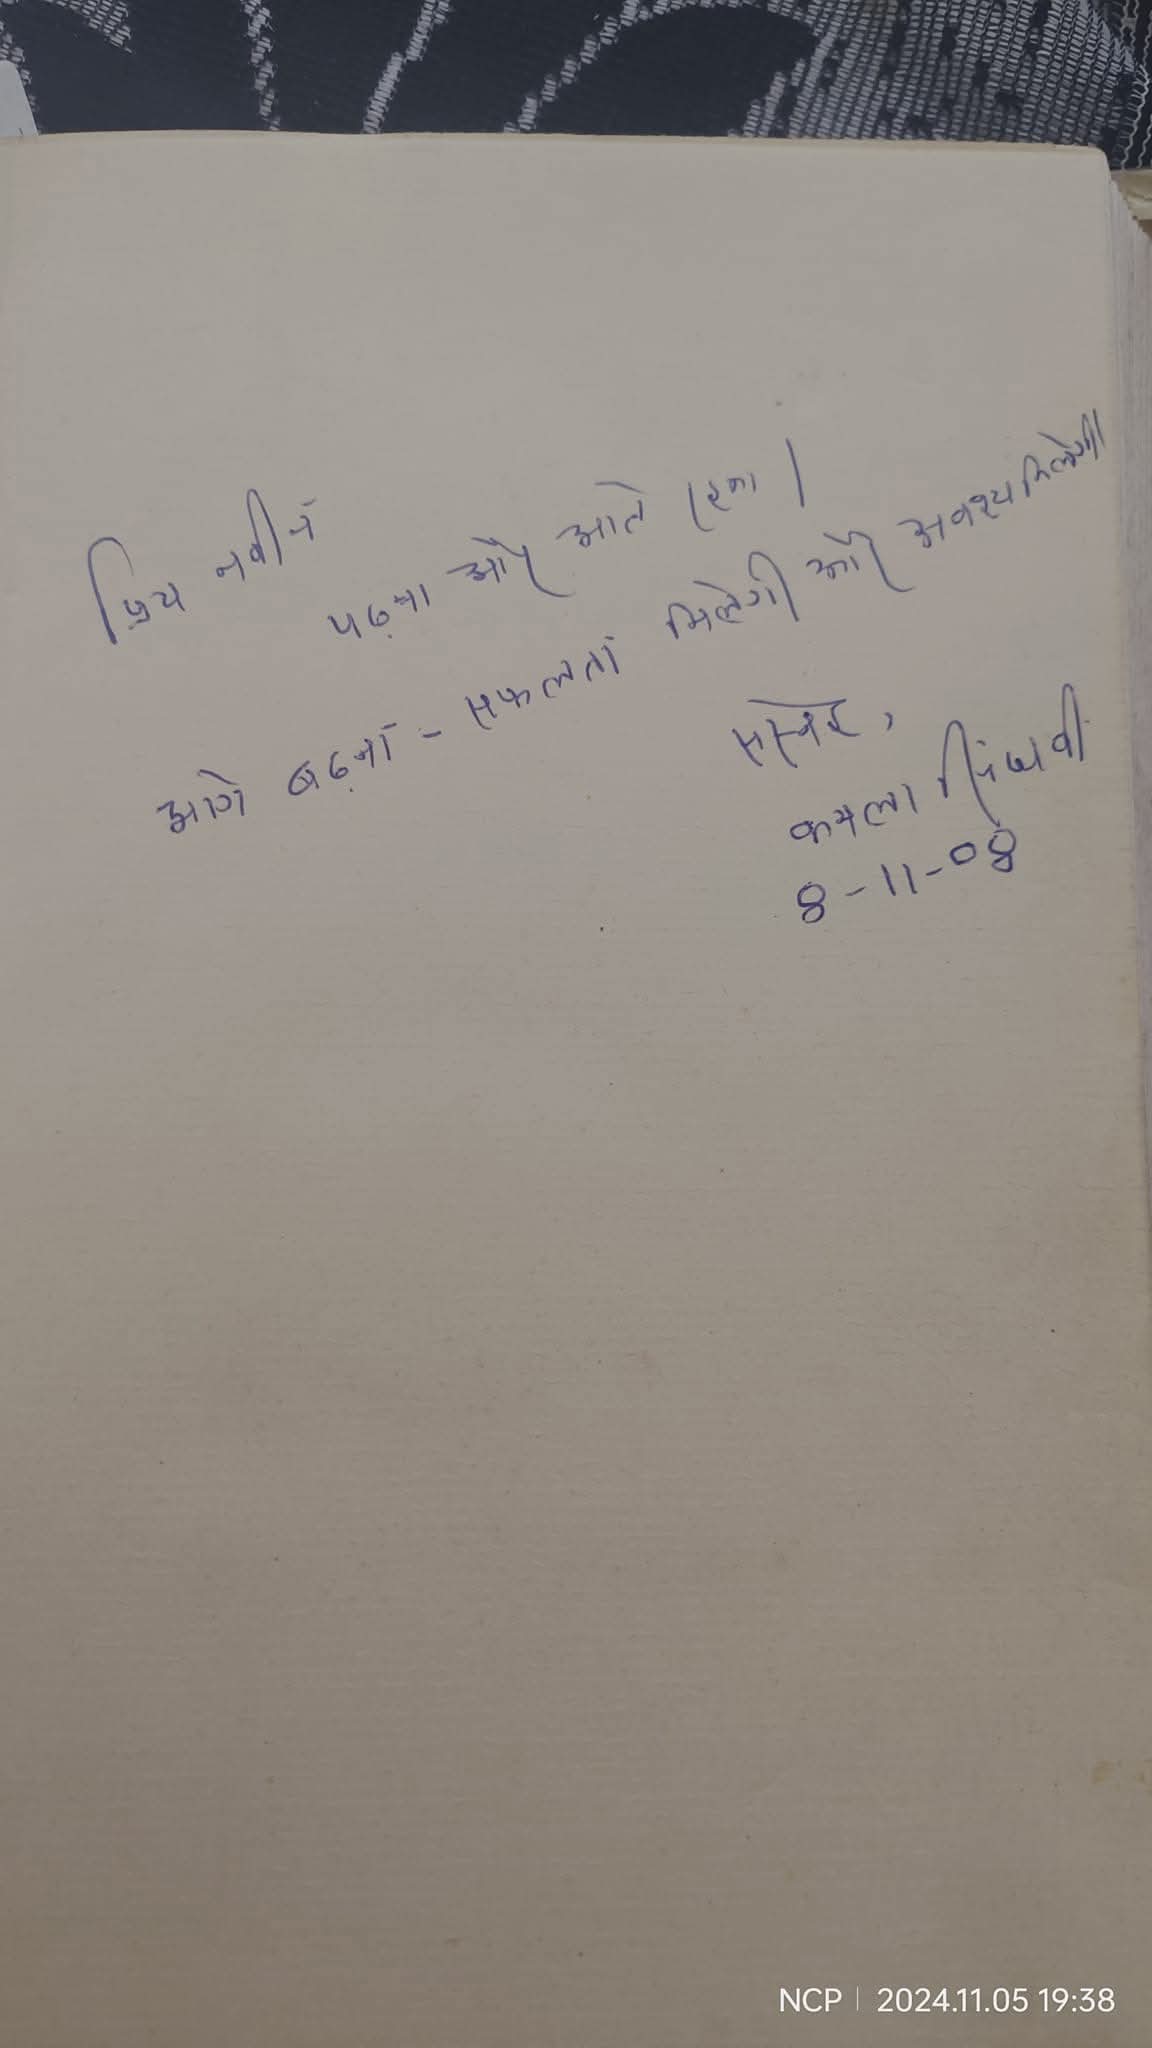 प्रिय नवीन
पढ़ना और आते रहना।
आगे बढ़नां - सफलतां मिलेगी और अवश्य मिलेगी।
सस्नेह,
कमला सिंघवी
8-11-08
NCP | 2024.11.05 19:38